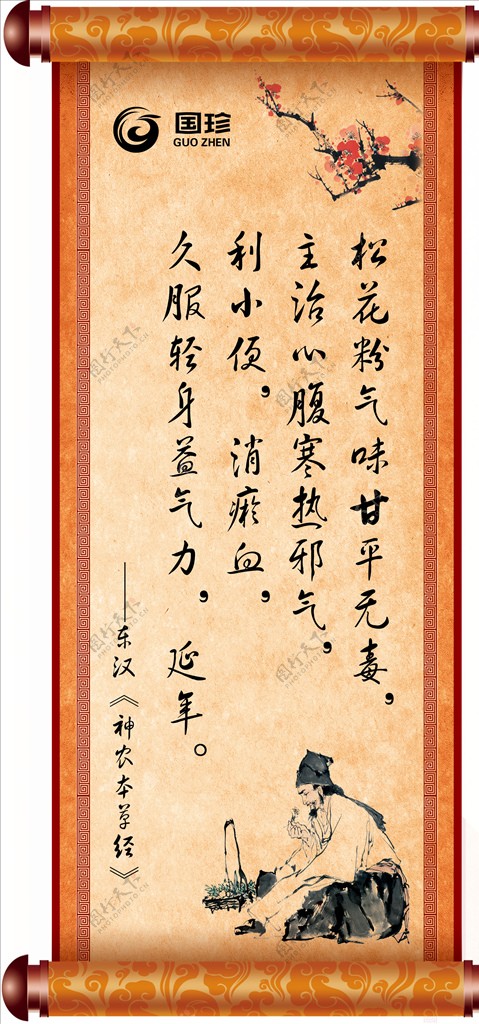 国珍
GUO ZHEN
松花粉气味甘平无毒，
主治心腹寒热邪气，
利小便，消瘀血，
久服轻身益气力，延年。
——东汉《神农本草经》
图行天下
PHOTOPHOTO.CN